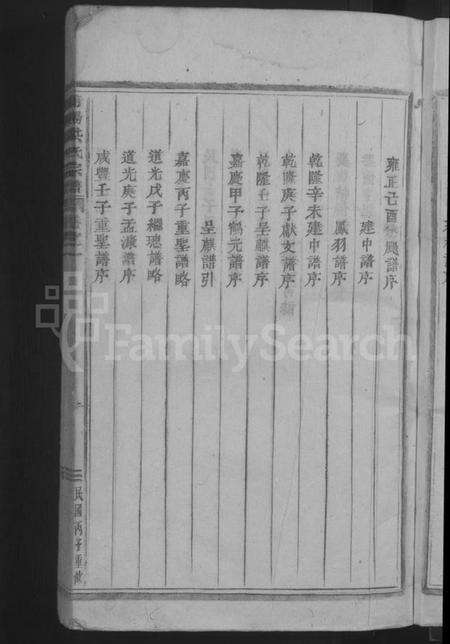 雍正己酉 飚譜序
建中譜序
鳳羽譜序
乾隆辛未建中譜序
乾隆庚子献文譜序
乾隆壬子呈麒譜序
嘉慶甲子鶴元譜序
呈麒譜引
嘉慶丙子重鋆譜略
道光戊子繼璁譜略
道光庚子孟濂譜序
咸豐壬子重鋆譜序
氏宗譜
民國丙子重
FamilySearch